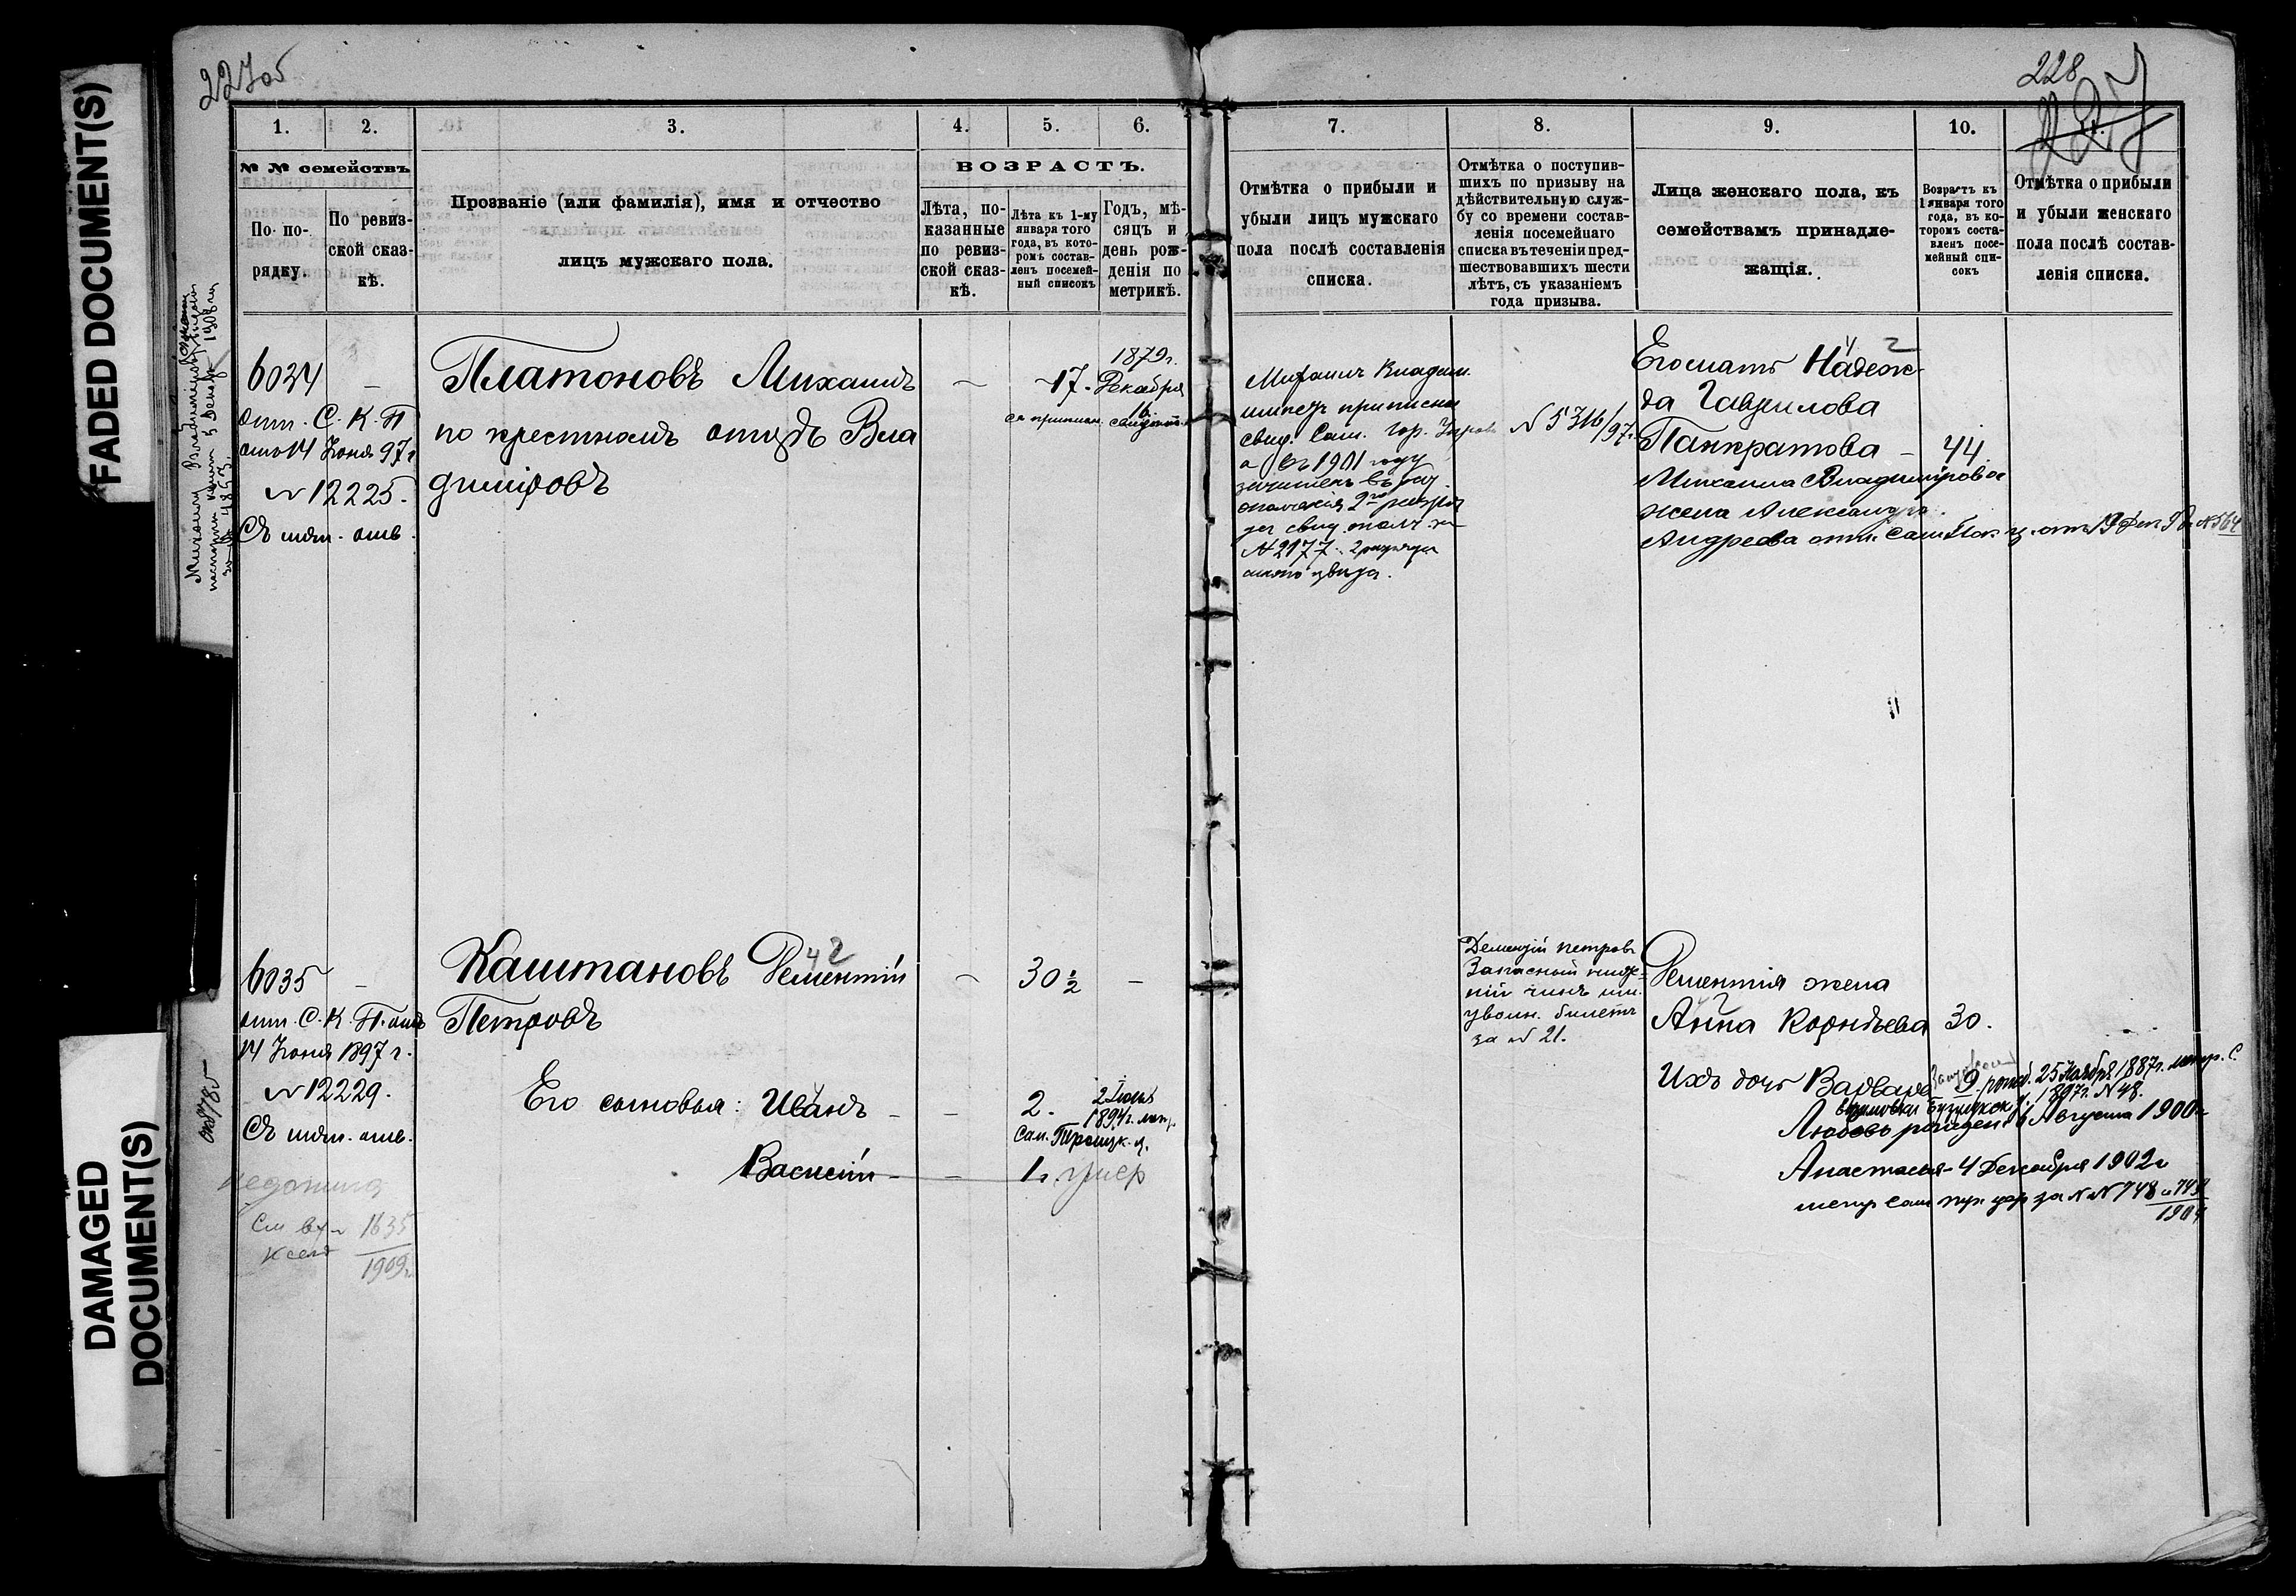 FADED DOCUMENT(S)
DAMAGED
DOCUMENT(S)
227об
1. 2. 3. 4. 5. 6.
№ № семействъ
По по-
рядку.
По ревиз-
ской сказ-
кѣ.
Прозваніе (или фамилія), имя и отчество
лицъ мужскаго пола.
ВОЗРАСТЪ.
Лѣта, по-
казанные
по ревиз-
ской сказ-
кѣ.
Лѣта къ 1-му
января того
года, въ кото-
ромъ состав-
ленъ посемей-
ный списокъ
Годъ, мѣ-
сяцъ и
день рож-
денія по
метрикѣ.
6034 —
отн. С. К. П
отъ 14 Іюня 97 г
№ 12225.
Съ отв.
Платоновъ Михаилъ
по крестномъ отцѣ Вла
диміровъ
—
17.
1879 г.
Декабря
16
Михаилъ Владиміровъ
1908 г
6035 —
отн. С. К. П. отъ
14 Іюня 1897 г.
№ 12229.
Съ отв.
См вх
1635
1909 г
Каштановъ Дементій
Петровъ
— 30 ½ —
Его сыновья: Иванъ — — 2.
2 Іюля
1894 г. метр.
Сам. Троицк. ц.
Василій — — 1 г. умер
228
7. 8. 9. 10.
Отмѣтка о прибыли и
убыли лицъ мужскаго
пола послѣ составленія
списка.
Отмѣтка о поступив-
шихъ по призыву на
дѣйствительную служ-
бу со времени состав-
ленія посемейнаго
списка въ теченіи пред-
шествовавшихъ шести
лѣтъ, съ указаніемъ
года призыва.
Лица женскаго пола, къ
семействамъ принадле-
жащія.
Возрастъ къ
1 января того
года, въ ко-
торомъ соста-
вленъ посе-
мейный спи-
сокъ
Отмѣтка о прибыли
и убыли женскаго
пола послѣ состав-
ленія списка.
Михаилъ Владим.
приписки
свид. Сам. Гор. Управ
а въ 1901 году
зачисленъ въ рат.
ополченія 2го разря
да свид. ополч. за
№ 2177. 2 разряда
№ 5316/97 г.
Его мать Надеж-
да Гаврилова
Панкратова — 44.
Михаила Владимірова
жена Александра
Андреева отн. Сам.
Дементій Петровъ
Запасный ниж-
ній чинъ
уволн. билетъ
за № 21.
Дементія жена
Анна Корнѣева 30.
Ихъ дочь Варвара 9 рожд. 25 Ноября 1887 г. метр. С.
Бузулукск у. 1897 г. № 48.
Любовь рожден. 6 Августа 1900 г
Анастасья — 4 Декабря 1902 г
метр Сам за № № 748 и 749
1904